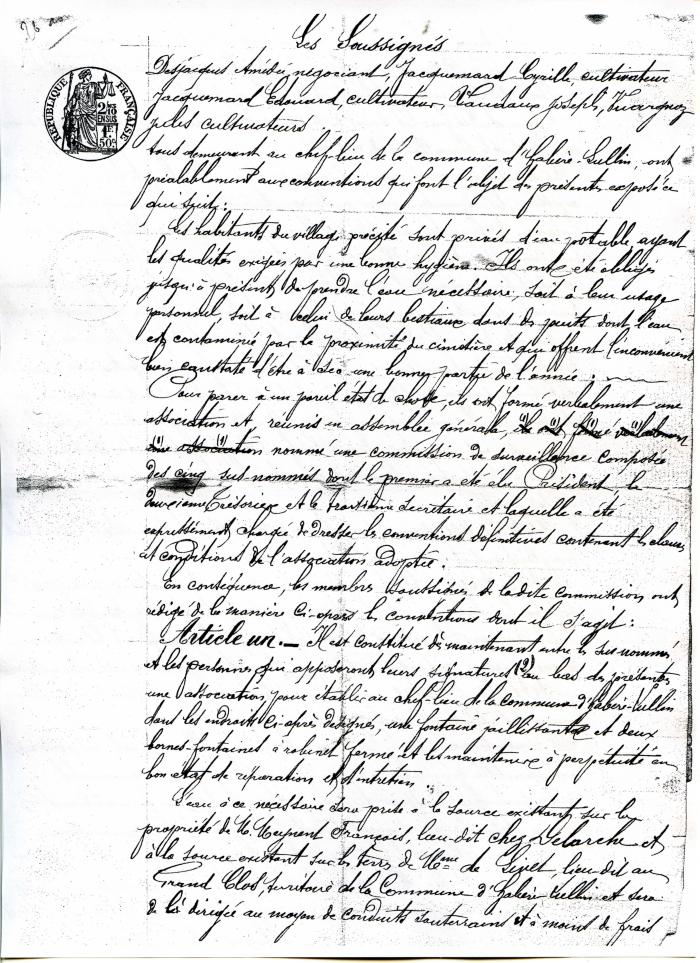 Les Soussignés
Desjacques Amédée, négociant, Jacquemard Cyrille, cultivateur
Jacquemard Édouard, cultivateur, Vaudaux Joseph,
jules cultivateurs
RÉPUBLIQUE FRANÇAISE
tous demeurant au chef-lieu de la commune d'Habère-Lullin, ont
préalablement aux conventions qui font l'objet des présentes exposé ce
qui suit:
Les habitants du village précité sont privés d'eau potable ayant
les qualités exigées par une bonne hygiène. Ils ont été obligés
jusqu'à présent de prendre l'eau nécessaire, soit à leur usage
personnel, soit à celui de leurs bestiaux dans des puits dont l'eau
est contaminée par la proximité du cimetière et qui offrent l'inconvénient
bien constaté d'être à sec une bonne partie de l'année.
Pour parer à un pareil état de chose, ils ont formé verbalement une
association et, réunis en assemblée générale, ils ont formé verbalement
une association nommé une commission de surveillance composée
des cinq sus nommés dont le premier a été élu Président, le
deuxième Trésorier et le troisième secrétaire et laquelle a été
expressément chargée de dresser les conventions définitives contenant les clauses
et conditions de l'association adoptée.
En conséquence, les membres soussignés de ladite commission ont
rédigé de la manière ci-après les conventions dont il s'agit:
Article un._ Il est constitué dès maintenant entre les sus nommés
et les personnes qui apposeront leurs signatures (2) au bas des présentes
une association pour établir au chef-lieu de la commune d'Habère-Lullin
dans les endroits ci-après désignés, une fontaine jaillissante et deux
bornes-fontaines à robinet fermé et les maintenir à perpétuité en
bon état de réparation et d'entretien
L'eau à ce nécessaire sera prise à la source existant sur la
propriété de M. Meynent François, lieu-dit chez Delarche et
à la source existant sur les terres de Mme de Livet, lieu-dit au
Grand Clos, territoire de la Commune d'Habère-Lullin et sera
de là dirigée au moyen de conduits souterrains et à moins de frais